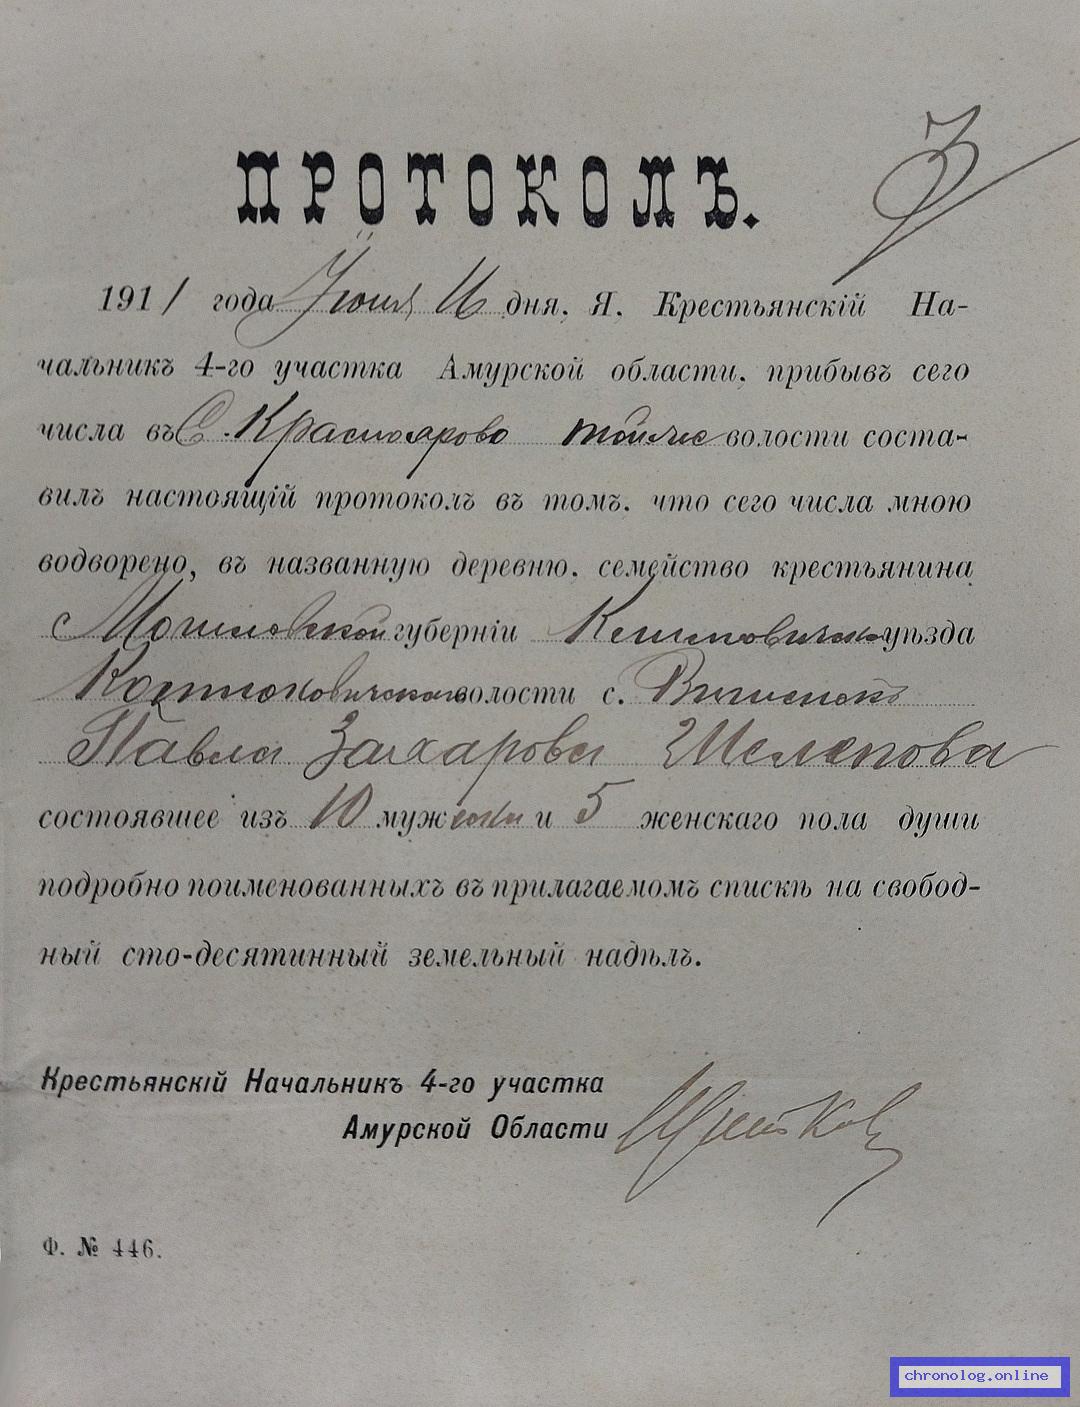 3
ПРОТОКОЛЪ.
1911 года Іюня 16 дня. Я. Крестьянскій На-
чальникъ 4-го участка Амурской области, прибывъ сего
числа въ С. Красноярово той же волости соста-
вилъ настоящій протоколъ въ томъ. что сего числа мною
водворено, въ названную деревню. семейство крестьянина
Могилевской губерніи уѣзда
Костюковичской волости с.
Павла Захарова Шелепова
состоявшее изъ 10 мужески и 5 женскаго пола души
подробно поименованныхъ въ прилагаемомъ спискѣ на свобод-
ный сто-десятинный земельный надѣлъ.
Крестьянскій Начальникъ 4-го участка
Амурской Области
Ф. № 446.
chronolog.online